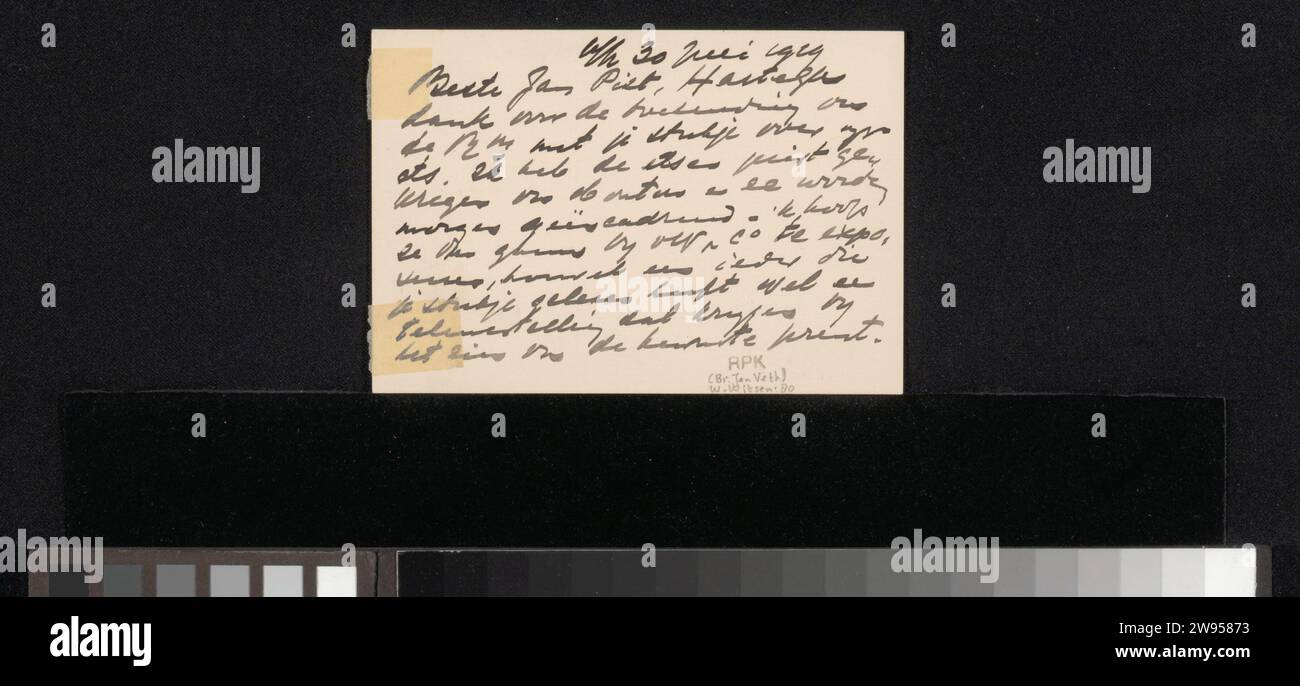 30 Juli 1919
Beste Jan Piet, Hartelijk
dank voor de toezending van
de met je stukje over
ets. Ik heb de etsen juist
van en ze worden
morgen geëncadreerd. Ik hoop
ze by te expo,
seeren, hoewel een ieder die
je stukje gelezen heeft wel een
teleurstelling zal krygen by
het zien van de bewuste prent.
RPK
(Br. Jan Veth)
W. Witsen: 80
alamy
Image ID: 2W95873
www.alamy.com